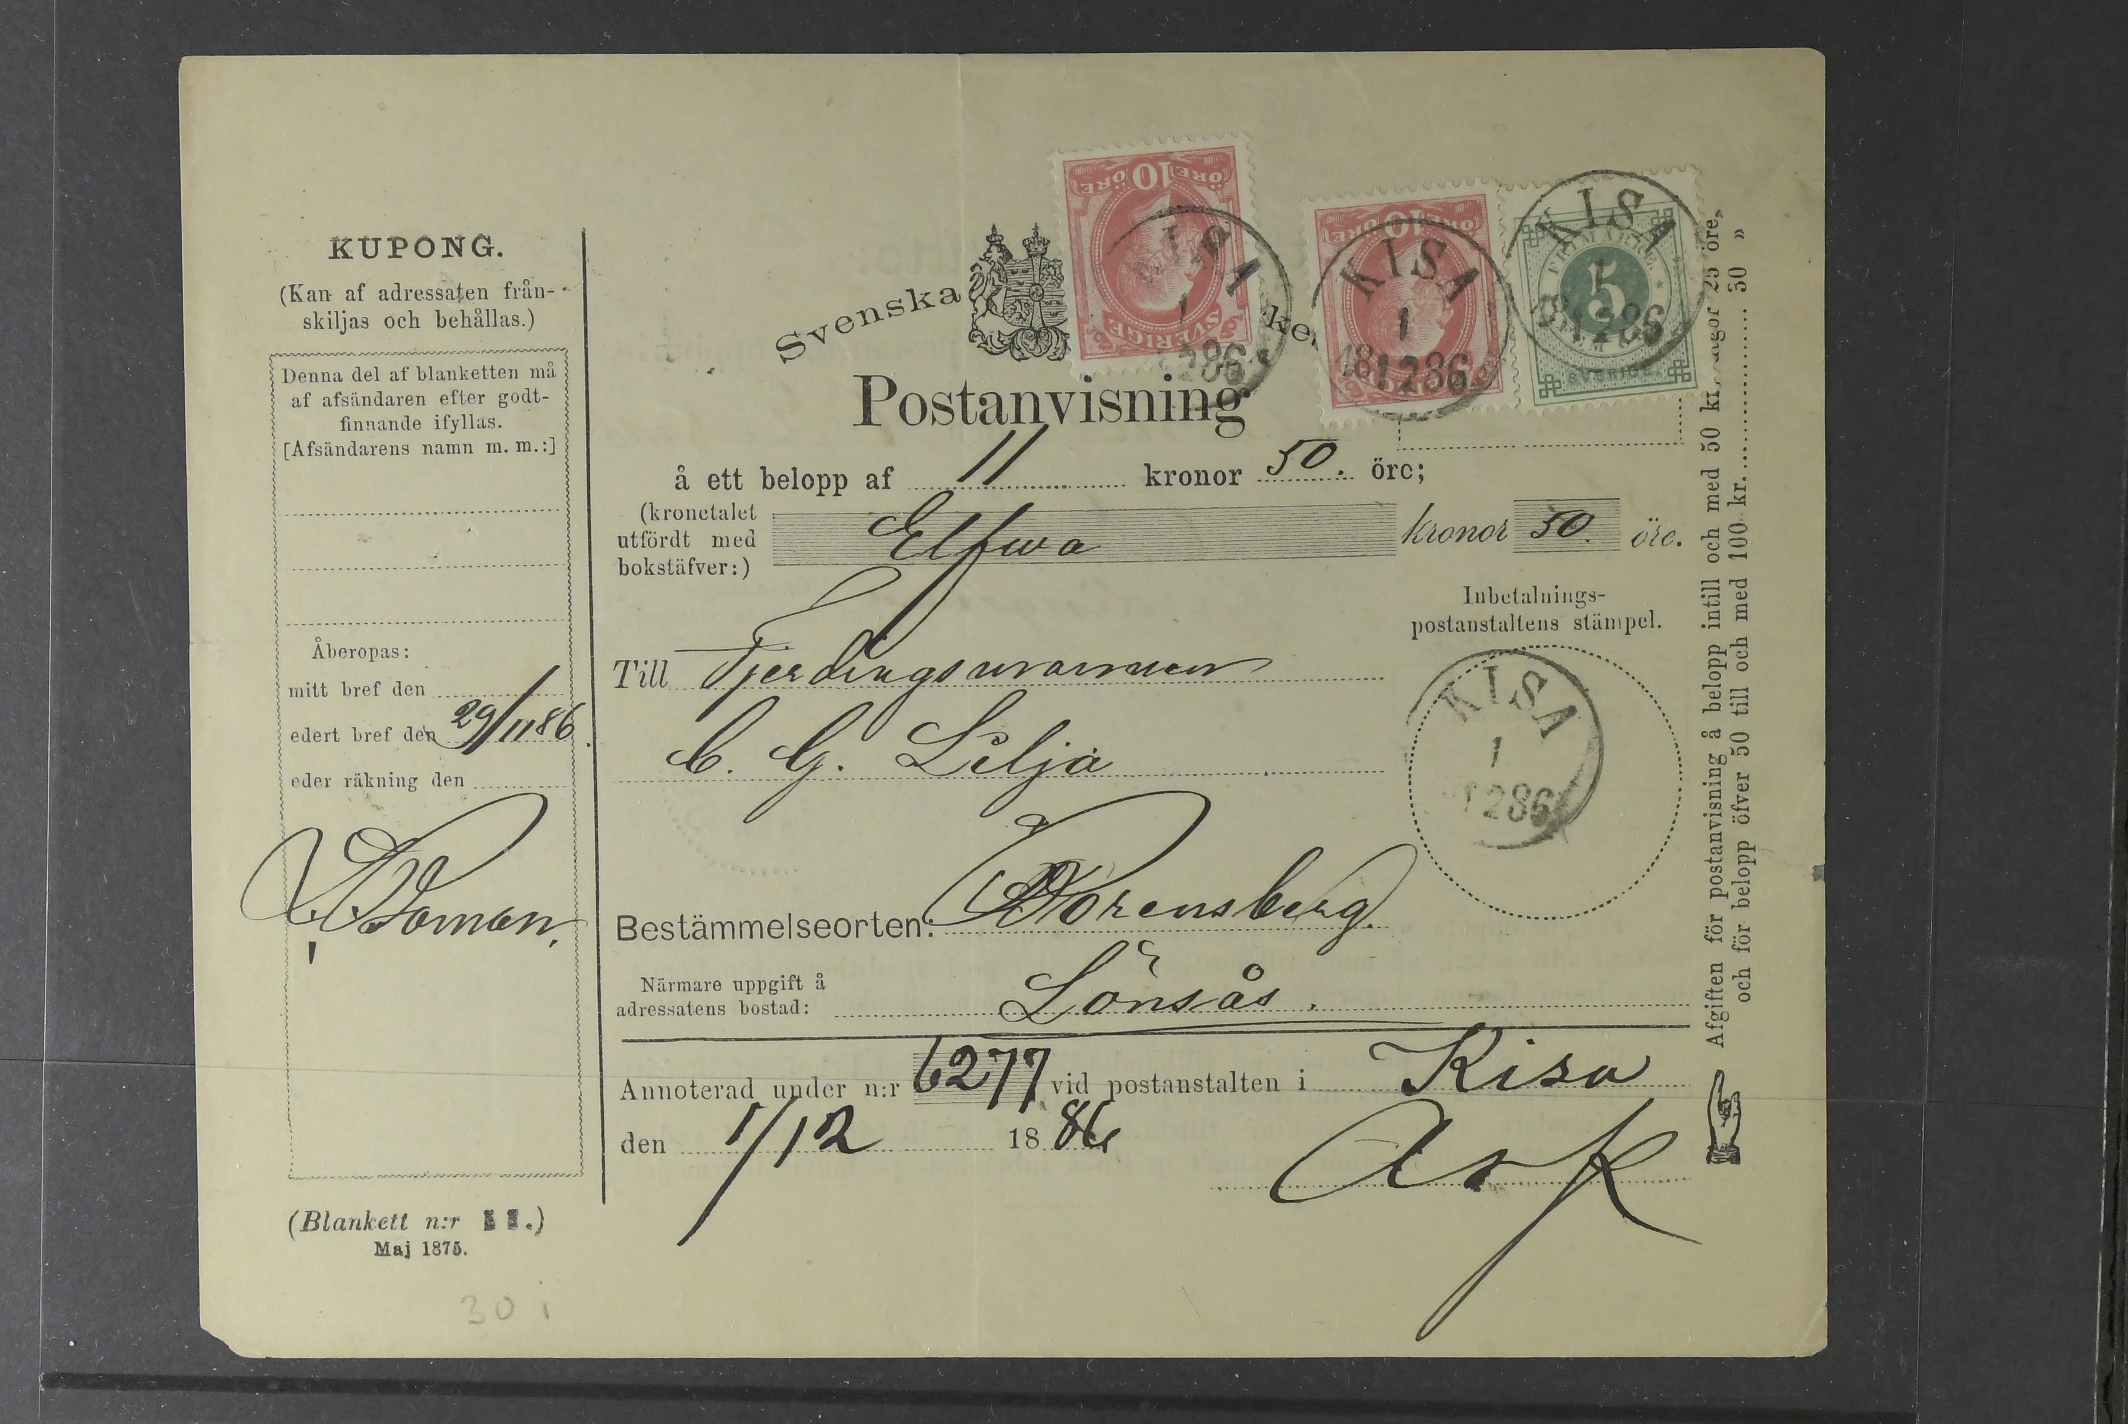 KUPONG.
(Kan af adressaten från-
skiljas och behållas.)
Denna del af blanketten må
af afsändaren efter godt-
finnande ifyllas.
[Afsändarens namn m. m.:]
Åberopas:
mitt bref den
edert bref den 29/11 86.
eder räkning den
(Blankett n:r II.)
Maj 1875.
30 i
10 ÖRE
SVERIGE
KISA
1
1286
10 ÖRE
KISA
1
1286
FRIMÄRKE
5
FEM
SVERIGE
KISA
1
1286
Svenska
Postanvisning
å ett belopp af 11 kronor 50. öre;
(kronetalet
utfördt med
bokstäfver:)
Elfwa kronor 50. öre.
Inbetalnings-
postanstaltens stämpel.
KISA
1
1286
Till Fjerdingsmannen
C. G. Lilja
Bestämmelseorten: Borensberg.
Närmare uppgift å
adressatens bostad:
Lönsås.
Annoterad under n:r 6277 vid postanstalten i Kisa
den 1/12 1886
Afgiften för postanvisning å belopp intill och med 50 kr. 25 öre,
och för belopp öfver 50 till och med 100 kr. 30 »